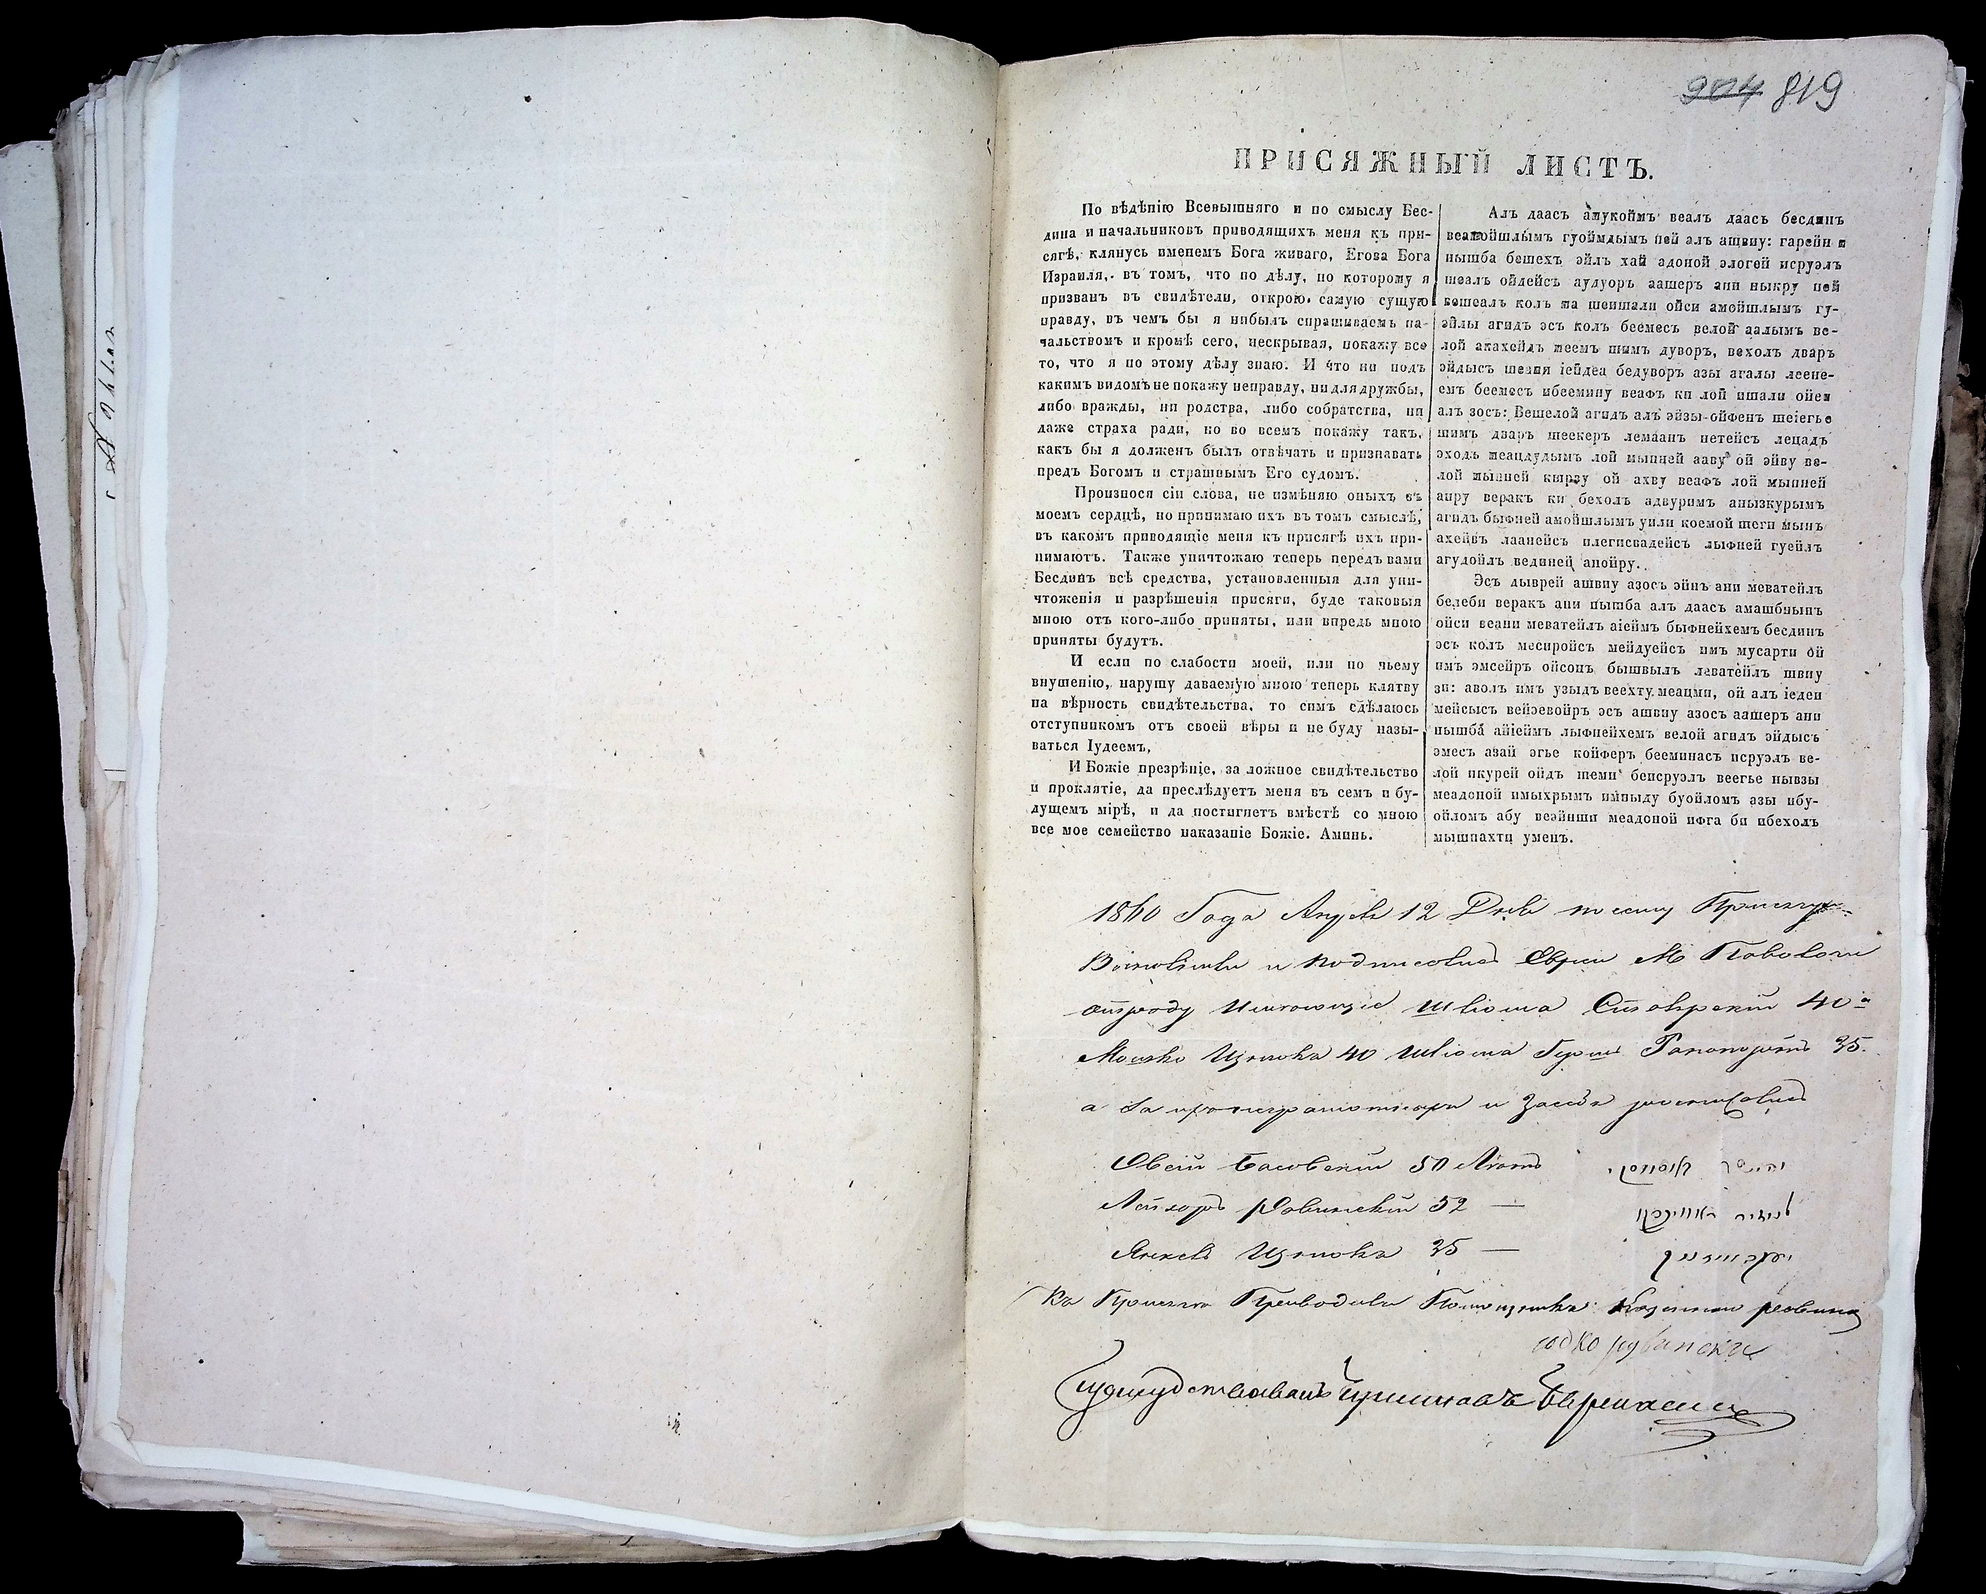 904 819
ПРИСЯЖНЫЙ ЛИСТЪ.
По вѣдѣнію Всевышняго и по смыслу Бес-
дина и начальниковъ приводящихъ меня къ при-
сягѣ, клянусь именемъ Бога живаго, Егова Бога
Израиля, въ томъ, что по дѣлу, по которому я
призванъ въ свидѣтели, открою самую сущую
правду, въ чемъ бы я нибылъ спрашиваемъ на-
чальствомъ и кромѣ сего, нескрывая, покажу все
то, что я по этому дѣлу знаю. И что ни подъ
какимъ видомъ не покажу неправду, ни для дружбы,
либо вражды, ни родства, либо собратства, ни
даже страха ради, но во всемъ покажу такъ,
какъ бы я долженъ былъ отвѣчать и признавать
предъ Богомъ и страшнымъ Его судомъ.
Произнося сіи слова, не измѣняю оныхъ въ
моемъ сердцѣ, но принимаю ихъ въ томъ смыслѣ,
въ какомъ приводящіе меня къ присягѣ ихъ при-
нимаютъ. Также уничтожаю теперь передъ вами
Бесдинъ всѣ средства, установленныя для уни-
чтоженія и разрѣшенія присяги, буде таковыя
мною отъ кого-либо приняты, или впредь мною
приняты будутъ.
И если по слабости моей, или по чьему
внушенію, нарушу даваемую мною теперь клятву
на вѣрность свидѣтельства, то симъ сдѣлаюсь
отступникомъ отъ своей вѣры и не буду назы-
ваться Іудеемъ,
И Божіе презрѣніе, за ложное свидѣтельство
и проклятіе, да преслѣдуетъ меня въ семъ и бу-
дущемъ мірѣ, и да постигнетъ вмѣстѣ со мною
все мое семейство наказаніе Божіе. Аминь.
Алъ даасъ амукоймъ веалъ даасъ бесдинъ
веамойшлымъ гуоймдымъ пей элъ ашвиу: гарейн и
нышба бешехъ эйлъ хай адоной элогей исруэлъ
шеалъ ойдейсъ аудуоръ аашеръ ани ныкру пей
вешеалъ колъ ма шеишали ойси амойшлымъ гу-
эйлы агидъ эсъ колъ беемесъ велой аалымъ ве-
лой акахейдъ меемъ шимъ дуворъ, вехолъ дваръ
эйдысъ шеани іейдеа бедуворъ азы агалы леене-
емъ беемесъ ибеемину веафъ ки лой ишали ойси
алъ зосъ: Вешелой агидъ алъ эйзы-ойфенъ шеіегье
шимъ дваръ шеекеръ лемаанъ нетейсъ лецадъ
эходъ меацдудымъ лой мыпней ааву ой эйву ве-
лой мыпней кырву ой ахву веафъ лой мыпней
аиру веракъ ки бехолъ адвуримъ анызкурымъ
агидъ быфней амойшлымъ уили коемой шеги мынъ
ахейвъ лаанейсъ илегисвадейсъ лыфней гуейлъ
агудойлъ вединей анойру.
Эсъ дыврей ашвиу азосъ эйнъ ани меватейлъ
белеби веракъ ани нышба алъ даасъ амашбиынъ
ойси веани меватейлъ аіеймъ быфнейхемъ бесдинъ
эсъ колъ месиройсъ мейдуейсъ имъ мусарти ой
имъ эмсейръ ойсонъ бышвылъ леватейлъ швиу
зи: аволъ имъ узыдъ веехту меацми, ой алъ іедеи
мейсысъ вейэевойръ эсъ ашвиу азосъ аашеръ ани
нышба айіеймъ лыфнейхемъ велой агидъ эйдысъ
эмесъ азай эгье койферъ бееминасъ исруэлъ ве-
лой икурей ойдъ шеми бенсруэлъ веегье нывзы
меадоной имыхрымъ имныду буойломъ азы ибу-
ойломъ абу веэйнши меадоной ифга би ибехолъ
мышпахти умепъ.
1860 Года Апреля 12 Дня по сему Присягу
выполнили и подписались Евреи М Паволочи
отъ роду имеющіе Шлiома Сталярскій 40
Мошко Цымока 40 Шлiома Герш Рапопортъ 35.
а за неграмотныхъ и за себя росписались
Овсій Басовскій 50 Летъ
Лейзоръ Равинскій 52 —
Янкель Цымока 35 —
Къ Присяге Приводилъ Помощникъ Казеннаго равина